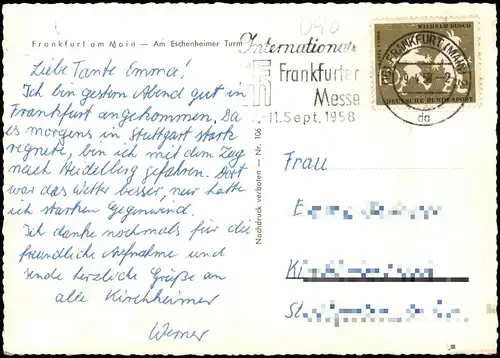 Frankfurt am Main — Am Eschenheimer Turm
Internationale
Frankfurter
Messe
-11. Sept. 1958
WILHELM BUSCH
FRANKFURT (MAIN)
DEUTSCHE BUNDESPOST
da
Liebe Tante Emma!
Ich bin gestern Abend gut in
Frankfurt angekommen. Da
es morgens in Stuttgart stark
regnete, bin ich mit dem Zug
nach Heidelberg gefahren. Dort
war das Wetter besser, nur hatte
ich starken Gegenwind.
Ich danke nochmals für die
freundliche Aufnahme und
sende herzliche Grüße an
alle Kirchheimer
Werner
Nachdruck verboten — Nr. 106
Frau
E
K
St